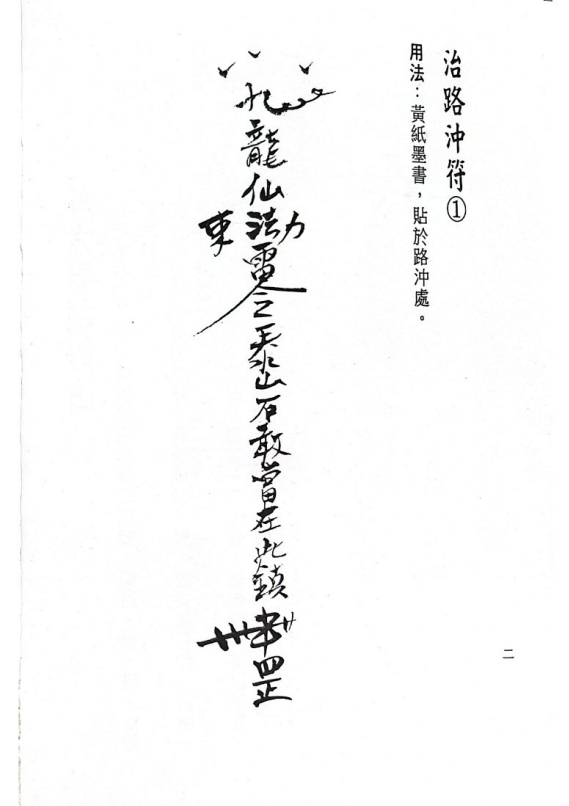 治路沖符①
用法：黃紙墨書，貼於路沖處。
九龍仙法雷令泰山石敢當在此鎮
罡
二